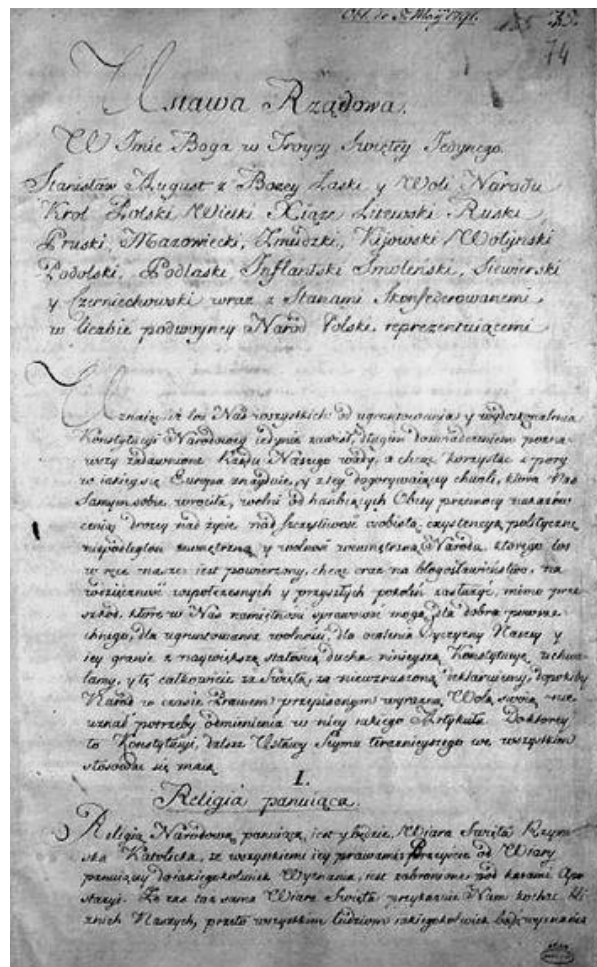 155
74
Ustawa Rządowa.
W Imie Boga w Troycy Swiętey Jedynego.
Stanisław August z Bożey Łaski y Woli Narodu
Krol Polski Wielki Xiąże Litewski Ruski
Pruski, Mazowiecki, Żmudzki, Kijowski Wołyński
Podolski, Podlaski Inflantski Smoleński, Siewierski
y Czerniechowski wraz z Stanami Skonfederowanemi
w liczbie podwoyney Narod Polski reprezentuiącemi
Uznaiąc iż los Nas wszystkich od ugruntowania y wydoskonalenia
Konstytucyi Narodowey iedynie zawisł, długim doswiadczeniem pozna-
wszy zadawnione Rządu Naszego wady, a chcąc korzystać z pory
w iakiey się Europa znayduie, y z tey dogorywaiącey chwili, ktora Nas
Samym sobie wrociła, wolni od hanbiących Obcey przemocy nakazow
ceniąc drożey nad życie nad szczęśliwość osobistą exystencyą polityczną
niepodległość zewnętrzną y wolność wewnętrzną Narodu, ktorego los
w ręce nasze iest powierzony, chcąc oraz na błogosławieństwo, na
wdzięczność wspołczesnych y przyszłych pokoleń zasłużyć, mimo prze-
szkod, ktore w Nas namiętności sprawować mogą, dla dobra powsze-
chnego, dla ugruntowania wolności, dla ocalenia Oyczyzny Naszey y
iey granic z naywiększą stałością ducha ninieyszą Konstytucyę uchwa-
lamy, y tę całkowicie za Swiętą, za niewzruszoną deklaruiemy, dopokiby
Narod w czasie Prawem przepisanym wyrazną Wolą swoią nie
uznał potrzeby odmienienia w niey iakiego Artykułu. Do ktorey
to Konstytucyi, dalsze Ustawy Seymu teraznieyszego we wszystkim
stosować się maią.
I.
Religia panuiąca.
Religią Narodową panuiącą iest y będzie, Wiara Swięta Rzym-
ska Katolicka, ze wszystkiemi iey prawami. Przeyście od Wiary
panuiącey do iakiegokolwiek Wyznania, iest zabronione pod karami Apo-
stazyi. Że zas taż sama Wiara Swięta przykazuie Nam kochać bli-
znich Naszych, przeto wszystkim ludziom iakiegokolwiek bądź wyznania